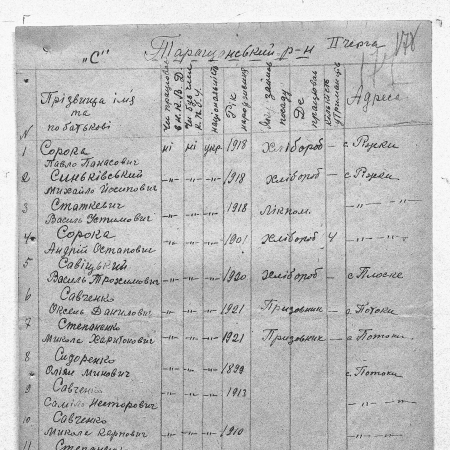 „С" Таращанський р-н II черга 178
Прізвища ім'я та по батькові
Чи працював в Н.К.В.Д.
Чи був член К.П.Б.У.
національність
Рік народження
Яку займав посаду Де працював
Кількість утриманців
Адреса
N
1 Сорока Павло Панасович ні ні укр 1918 Хлібороб — с Ріжки
2 Синьківський Михайло Йосипович -"- -"- -"- 1918 Хлібороб — с Ріжки
3 Статкевич Василь Устимович -"- -"- -"- 1918 Лікпом. -"- -"-
4 Сорока Андрій Остапович -"- -"- -"- 1901 Хлібороб 4 -"- -"-
5 Савіцький Василь Трохимович -"- -"- -"- 1920 Хлібороб — с Плоске
6 Савченко Оксень Данилович -"- -"- -"- 1921 Призовник — с Потоки
7 Степаненко Микола Харитонович -"- -"- -"- 1921 Призовник — с Потоки
8 Сидоренко Минович -"- -"- -"- 1899 с Потоки
9 Савченко Несторович -"- -"- -"- 1913 -"- -"-
10 Савченко Микола Карпович -"- -"- -"- 1910 -"- -"-
11